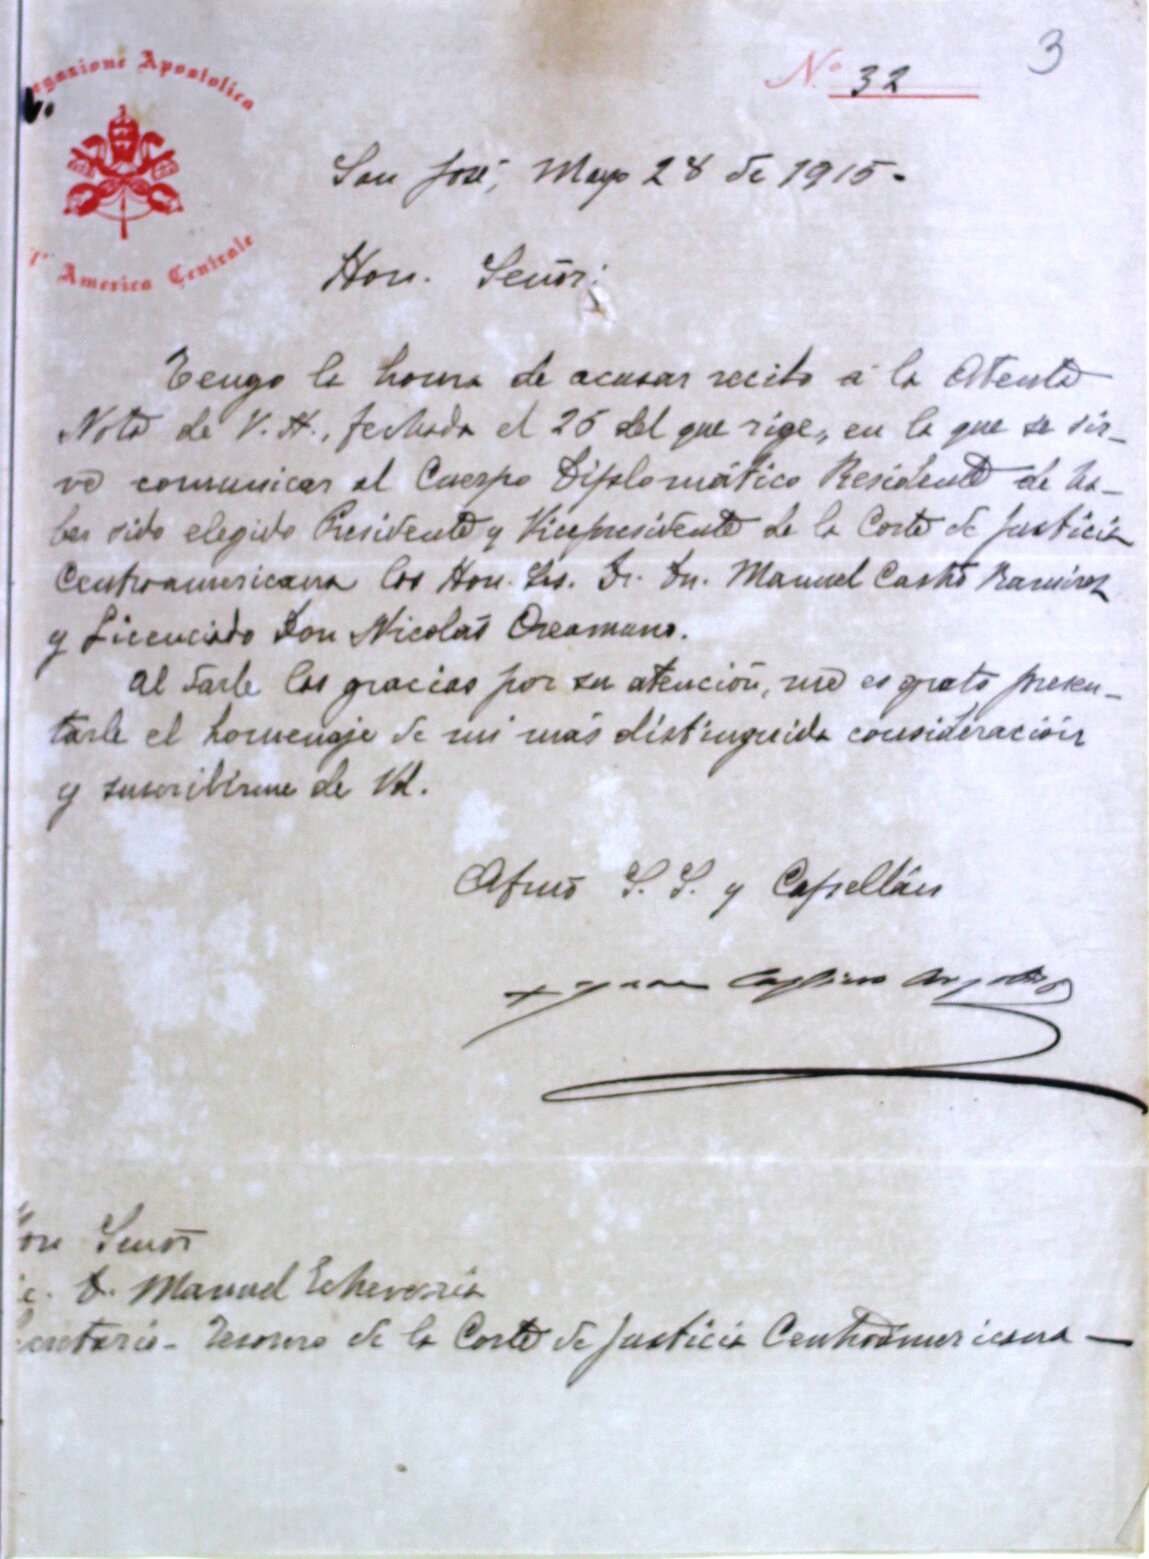 3
Nº 32
Apostolica
America Centrale
San José, Mayo 28 de 1915.
Hon. Señor:
Tengo la honra de acusar recibo á la Atenta
Nota de V. H., fechada el 25 del que rige, en la que se sir-
ve comunicar al Cuerpo Diplomático Residente de ha-
ber sido elegido Presidente y Vicepresidente de la Corte de Justicia
Centroamericana los Hon. Srs. Dr. Dn. Manuel Castro Ramírez
y Licenciado Don Nicolás Oreamuno.
Al darle las gracias por su atención, me es grato presen-
tarle el homenaje de mi más distinguida consideración
y suscribirme de Vd.
Afmo S. S. y Capellán
Señor
D. Manuel Echeverría
Tesorero de la Corte de Justicia Centroamericana